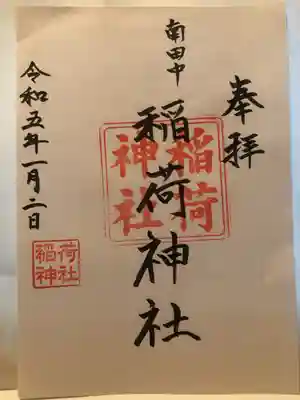 奉拝
南田中
稲荷神社
稲荷
神社
令和五年一月二日
荷社
稲神